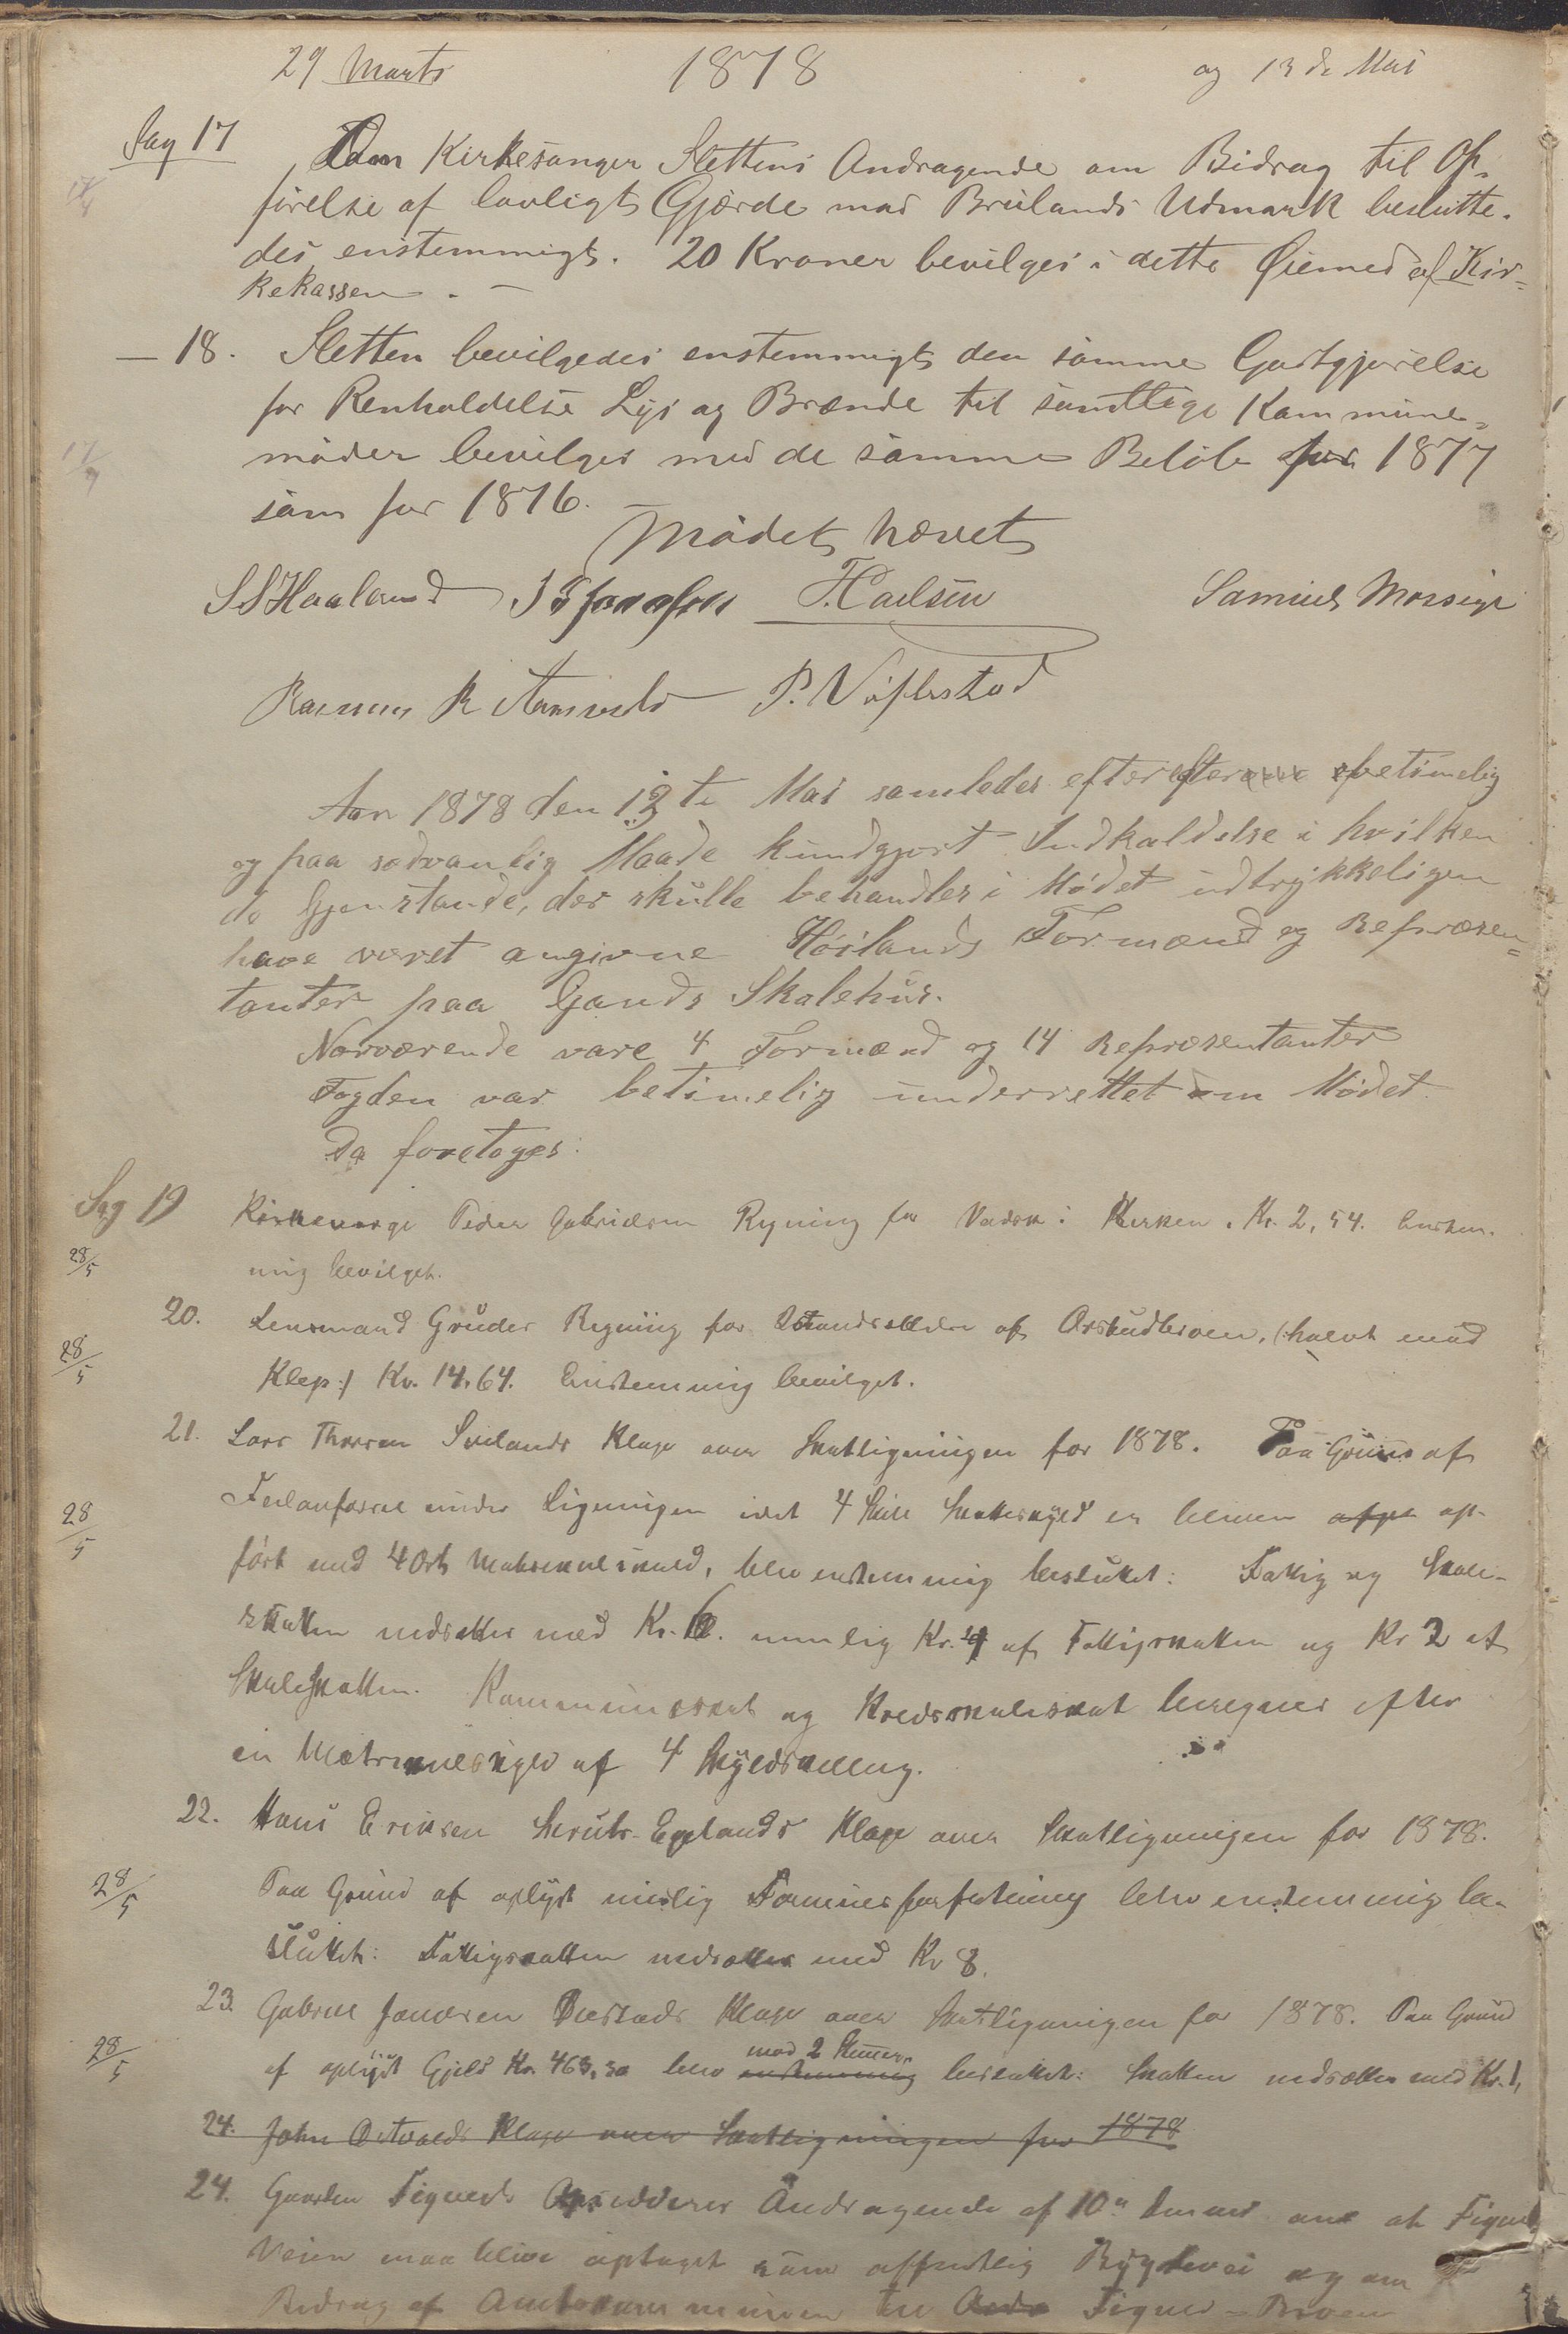 29 Marts 1878 og 13de Mai
Sag 17 Om Kirkesanger Slettens Andragende om Bidrag til Op-
førelse af lovligt Gjerde mod Brulands Udmark beslutte-
des enstemmigt. 20 Kroner bevilges i dette Øiemed af Kir-
kekassen. —
— 18. Sletten bevilgedes enstemmigt den samme Godtgjørelse
17/4
for Renholdelse Lys og Brænde til samtlige Kommune-
møder bevilges med de samme Beløb for 1877
17/9
som for 1876.
Mødet hævet
S S Haaland T. Carlsen Samuel Mossige
Rasmus R P. Vaflestad
Aar 1878 den 13te Mai samledes efter betimelig
og paa sedvanlig Maade kundgjort Indkaldelse i hvilken
de Gjenstande, der skulle behandles i Mødet udtrykkeligen
have været angivne Høilands Formænd og Repræsen-
tanter paa Gands Skolehus.
Nærværende vare 4 Formænd og 14 Repræsentanter
Fogden var betimelig underrettet om Mødet.
Da foretoges:
Sag 19 Kirkeværge Peder Gabrielsen Regning for Vadsk i Kirken. Kr. 2,54. Enstem-
28/5
mig bevilget.
20. Lensmand Gruder Regning for Istandsættelse af Orstadbroen, (halvt mod
28/5
Klep:/ Kr. 14,64. Enstemmig bevilget.
21. Lars Thorsen Svilands Klage over Skatligningen for 1878. Paa Grund af
Feilanførsel under Ligningen idet 4 Skill Skatteskyld er bleven op-
28/5
ført med 4 Ort Matrikulskyld, blev enstemmig besluttet: Fattig og Skole-
skatten nedsættes med Kr. 6. nemlig Kr. 4 af Fattigskatten og Kr 2 af
Skoleskatten. Kommuneskat og Kredsskoleskat beregnes efter
en Matrikulskyld af 4 Skyldskilling.
22. Hans Eriksen Skruds-Egelands Klage over Skatligningen for 1878.
28/5
Paa Grund af oplyst mislig Formuesforfatning blev enstemmig be-
sluttet: Fattigskatten nedsættes med Kr 8.
23. Gabriel Jonasen Klage over Skatligningen for 1878. Paa Grund
28/5
mod 2 Stemmer
af oplyst Gjeld Kr. blev enstemmig besluttet: Skatten nedsættes med Kr. 1,
24. John Østvolds Klage over Skatligningen for 1878
24. Gaarden Figveds Opsidderes Andragende af 10de om at Figved
Veien maa blive optaget som offentlig Bygdevei og om
Bidrag af Amtskommunen til Figved-Broen